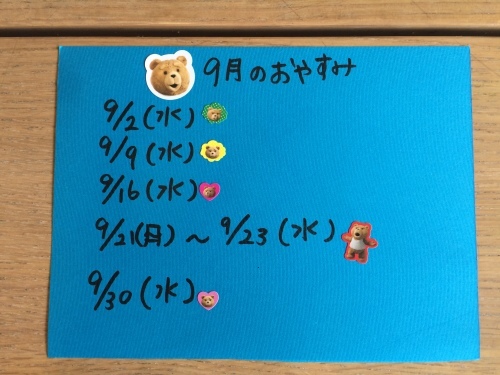 9月のおやすみ
9/2(水)
9/9(水)
9/16(水)
9/21(月)～9/23(水)
9/30(水)